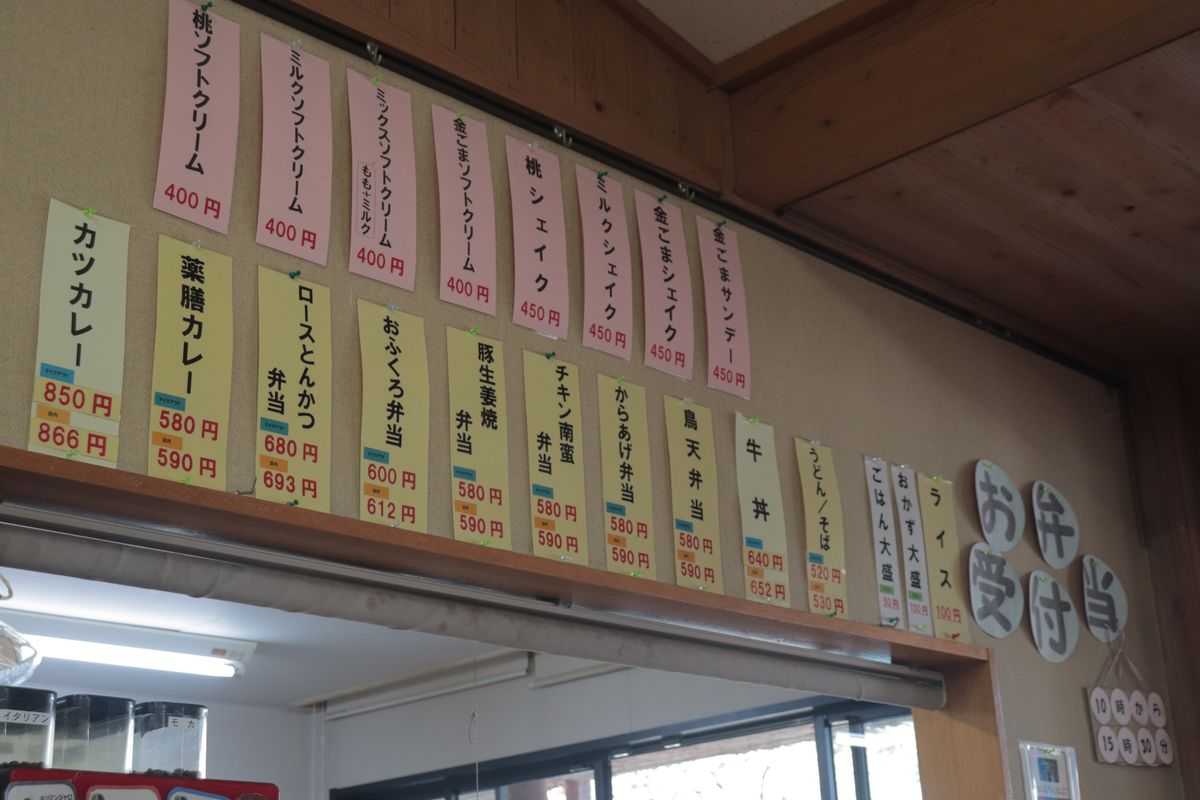 桃ソフトクリーム
400円
ミルクソフトクリーム
400円
ミックスソフトクリーム
もも+ミルク
400円
金ごまソフトクリーム
400円
桃シェイク
450円
ミルクシェイク
450円
金ごまシェイク
450円
金ごまサンデー
450円
カツカレー
テイクアウト
850円
店内
866円
薬膳カレー
テイクアウト
580円
店内
590円
ロースとんかつ
弁当
テイクアウト
680円
店内
693円
おふくろ弁当
テイクアウト
600円
店内
612円
豚生姜焼
弁当
テイクアウト
580円
店内
590円
チキン南蛮
弁当
テイクアウト
580円
店内
590円
からあげ弁当
テイクアウト
580円
店内
590円
鳥天弁当
テイクアウト
580円
店内
590円
牛丼
640円
652円
うどん/そば
520円
530円
ごはん大盛
50円
おかず大盛
100円
ライス
100円
お弁当
受付
10時から
15時30分
イタリアン
モカ